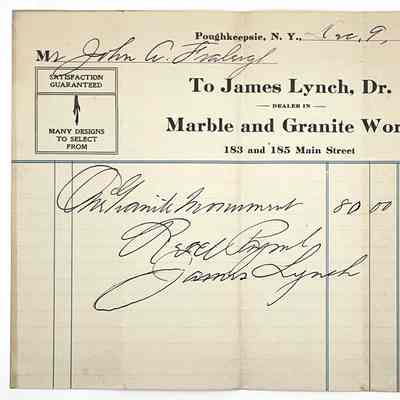 Poughkeepsie, N. Y., Dec. 9,
Mr John A. Fraleigh
SATISFACTION
GUARANTEED
MANY DESIGNS
TO SELECT
FROM
To James Lynch, Dr.
DEALER IN
Marble and Granite Wor
183 and 185 Main Street
One Granite Monument 80 00
Recd Paymt
James Lynch